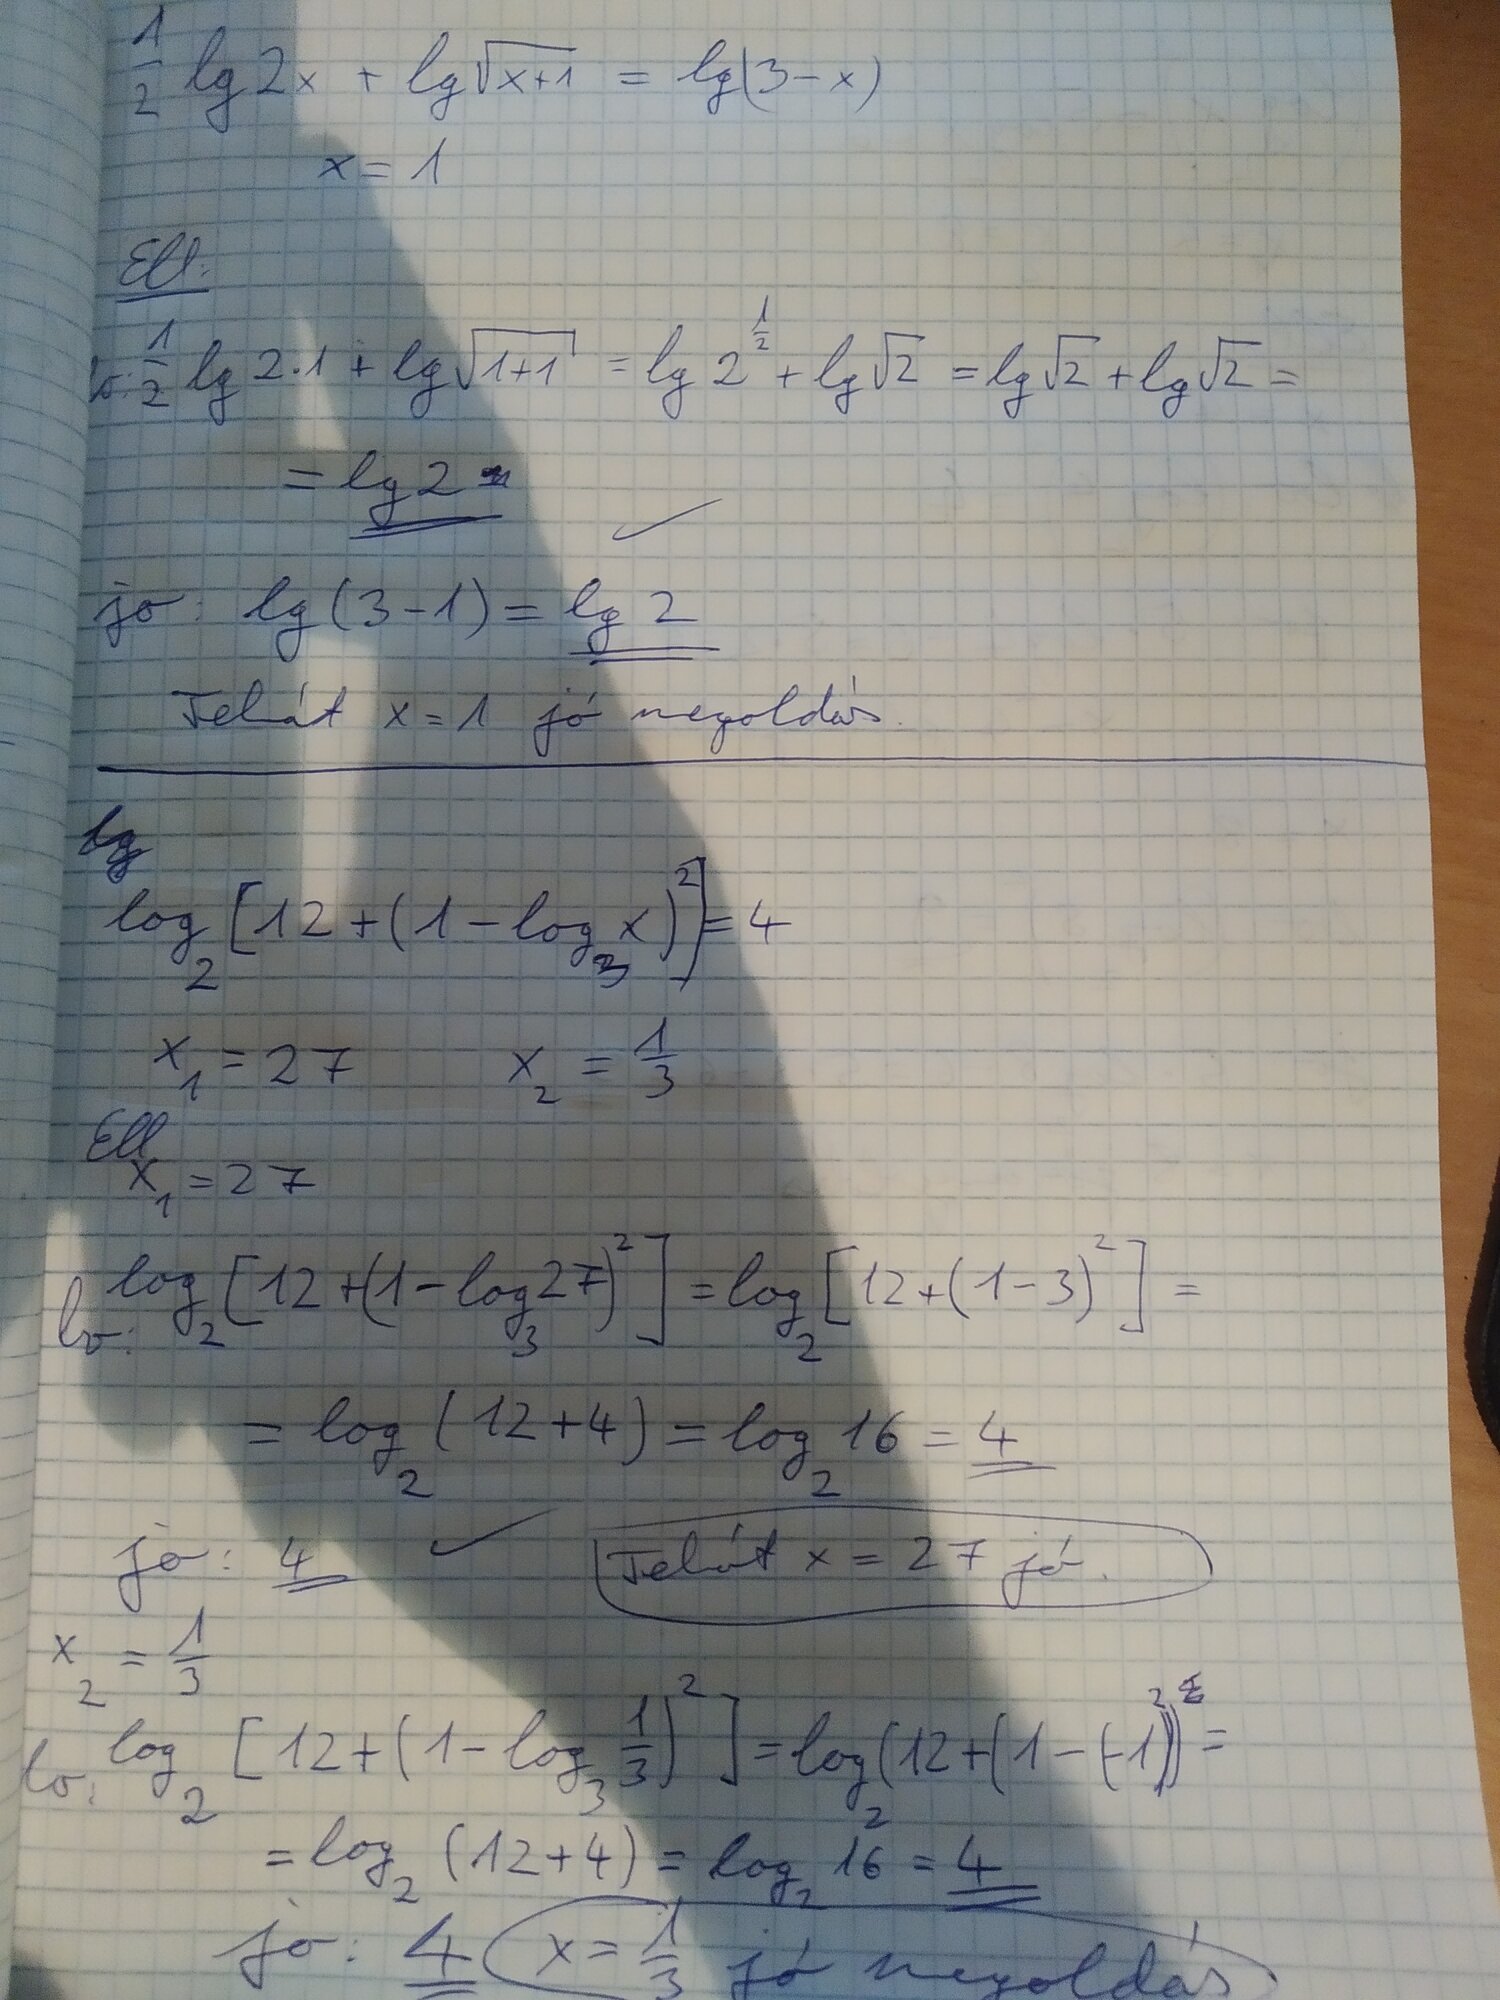 1/2 lg 2x + lg √(x+1) = lg(3-x)
x = 1
Ell:
b.: 1/2 lg 2·1 + lg √(1+1) = lg 2^(1/2) + lg √2 = lg √2 + lg √2 =
= lg 2
jo: lg (3-1) = lg 2 ✓
Tehát x = 1 jó megoldás.
log₂ [12 + (1 - log₃ x)²] = 4
x₁ = 27 x₂ = 1/3
Ell
x₁ = 27
bo: log₂ [12 + (1 - log₃ 27)²] = log₂ [12 + (1-3)²] =
= log₂ (12+4) = log₂ 16 = 4
jo: 4 ✓ Tehát x = 27 jó.
x₂ = 1/3
bo: log₂ [12 + (1 - log₃ 1/3)²] = log₂ (12 + (1-(-1))² =
= log₂ (12+4) = log₂ 16 = 4
jo: 4 x = 1/3 jó megoldás